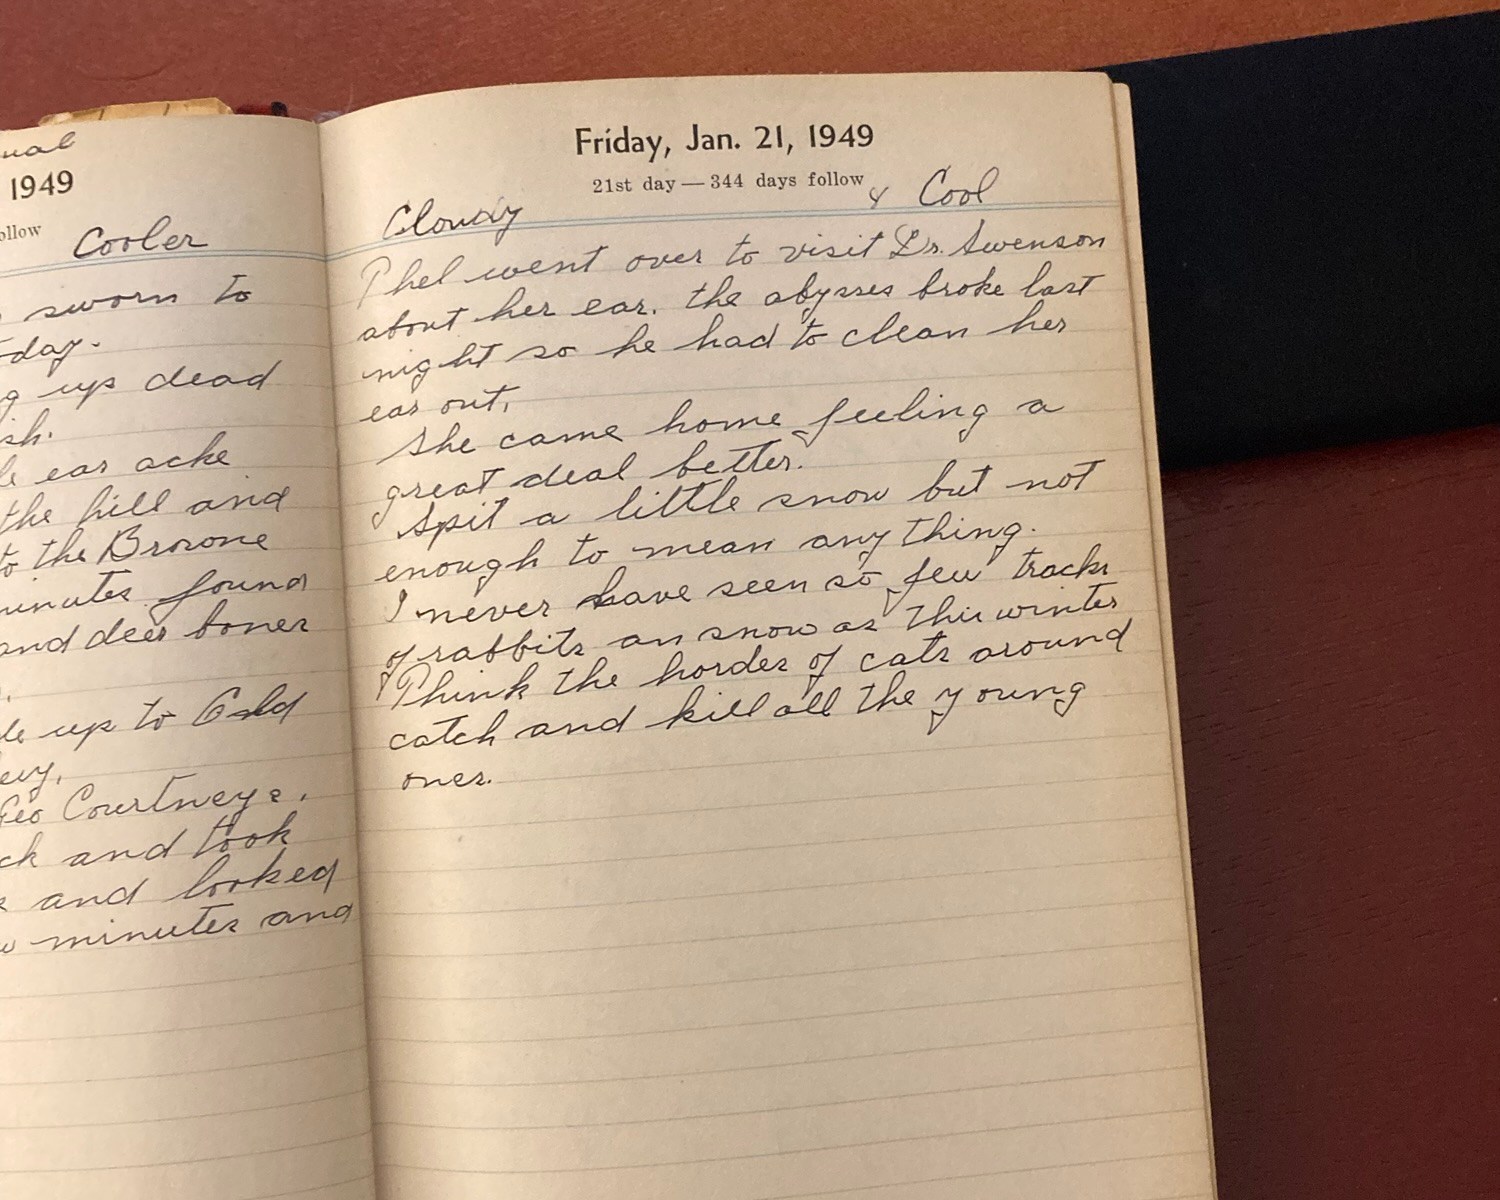 1949
Cooler
sworn to
up dead
ear acke
the hill and
to the Browne
minutes found
and deer bones
up to Gold
Geo Courtneys.
and took
and looked
minutes and
Friday, Jan. 21, 1949
21st day — 344 days follow
Cloudy & Cool
Phel went over to visit Dr. Swenson
about her ear. the abysses broke last
night so he had to clean her
ear out,
She came home feeling a
great deal better.
Spit a little snow but not
enough to mean any thing.
I never have seen so few tracks
of rabbits on snow as this winter
Think the hordes of cats around
catch and kill all the young
ones.